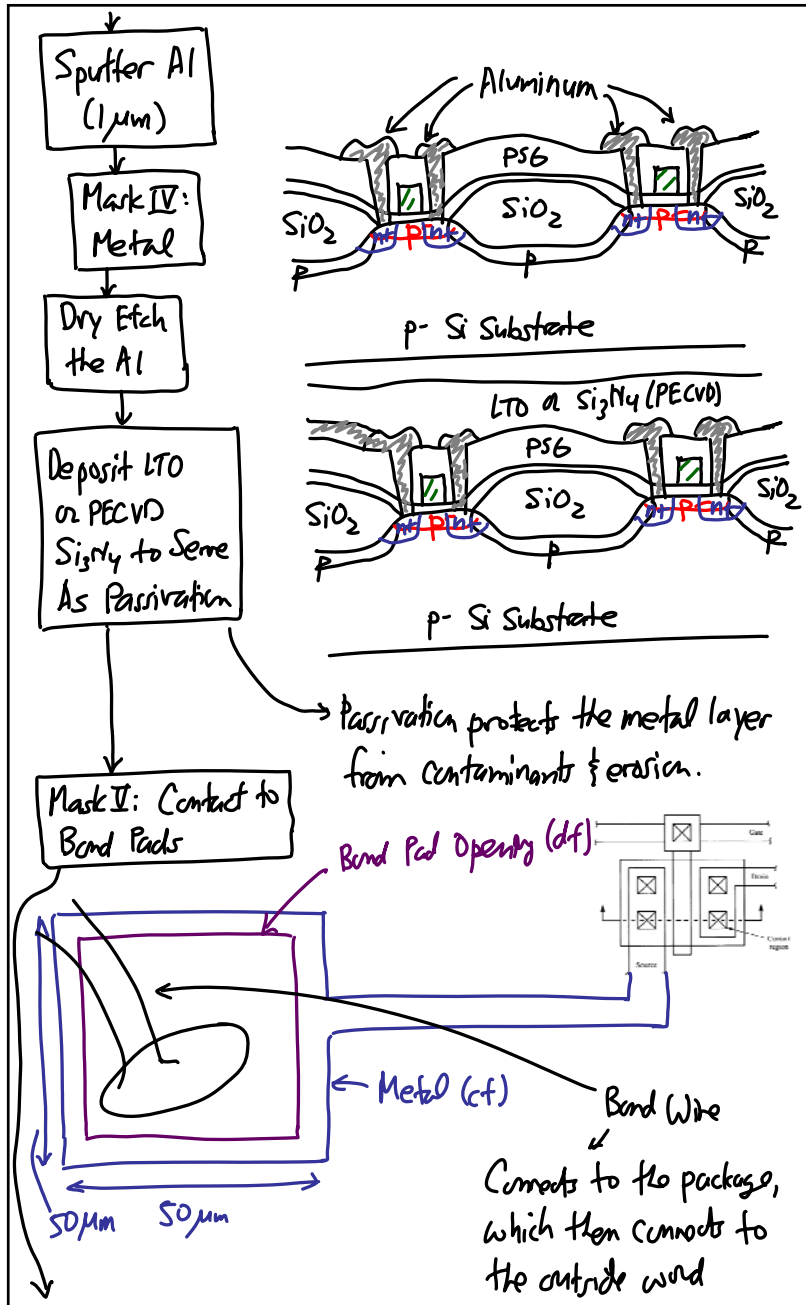 Sputter Al
(1 μm)
Mask IV:
Metal
Dry Etch
the Al
Deposit LTO
or PECVD
Si3N4 to Serve
As Passivation
Aluminum
PSG
SiO2
SiO2
SiO2
n+ p n+
n+ p n+
p
p
p
p- Si Substrate
LTO or Si3N4 (PECVD)
PSG
SiO2
SiO2
SiO2
n+ p n+
n+ p n+
p
p
p
p- Si Substrate
Passivation protects the metal layer
from contaminants & erosion.
Mask V: Contact to
Bond Pads
Bond Pad Opening (df)
Gate
Drain
Contact
region
Source
Metal (cf)
50 μm
50 μm
Bond Wire
Connects to the package,
which then connects to
the outside world